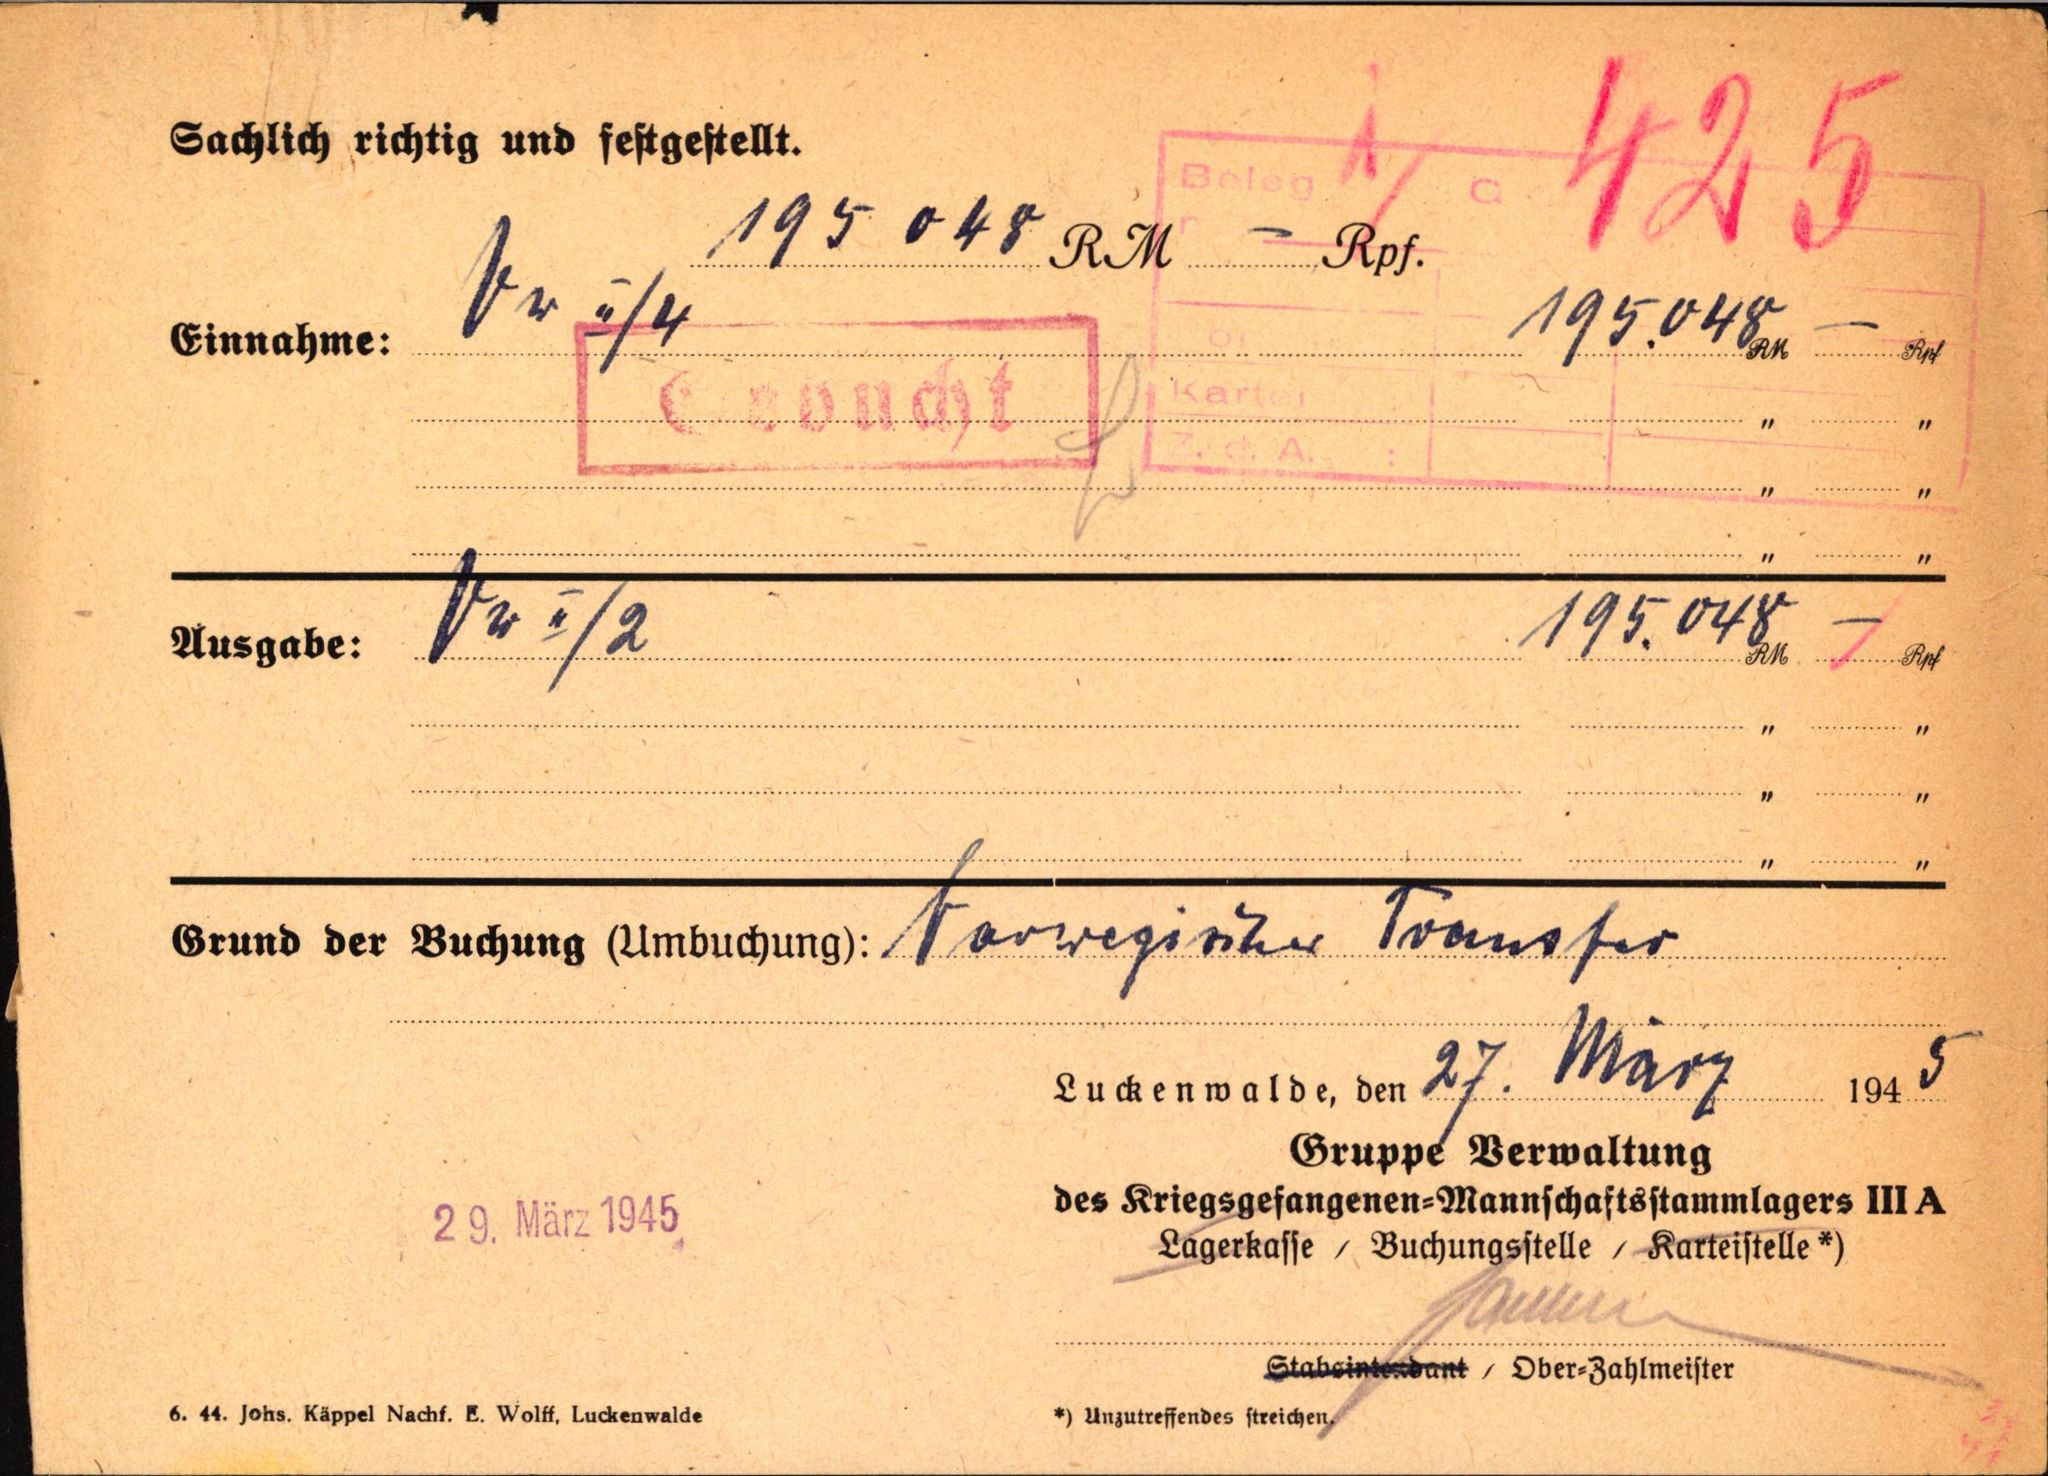 425
Sachlich richtig und festgestellt.
Beleg 1/
195 048 RM — Rpf.
Vw II/4
Einnahme: 195.048 RM — Rpf
Gebucht
Kartei :
Z. d. A. :
" "
" "
" "
Vw II/2
Ausgabe: 195.048 RM — Rpf
" "
" "
" "
Grund der Buchung (Umbuchung): Norwegischer Transfer
Luckenwalde, den 27. März 1945
Gruppe Verwaltung
des Kriegsgefangenen=Mannschaftsstammlagers III A
29. März 1945
Lagerkasse / Buchungsstelle / Karteistelle *)
Stabsintendant / Ober=Zahlmeister
6. 44. Johs. Käppel Nachf. E. Wolff, Luckenwalde
*) Unzutreffendes streichen.